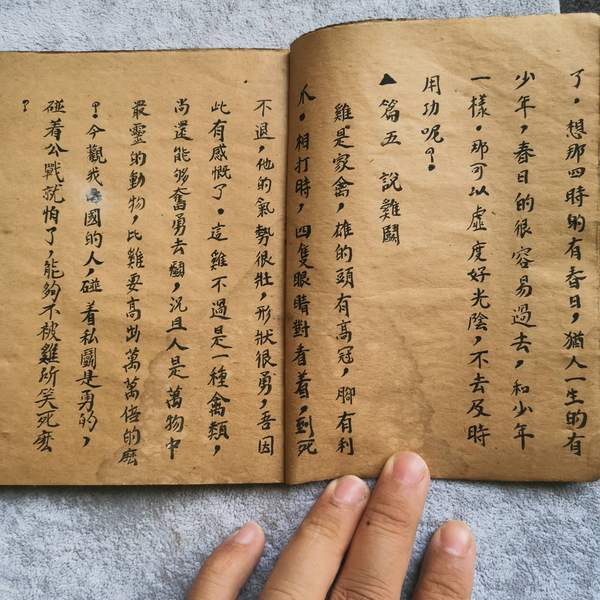 了。想那四時的有春日，猶人一生的有
少年，春日的很容易過去，和少年
一樣。那可以虛度好光陰，不去及時
用功呢？。
▲篇五 說雞鬭
雞是家禽，雄的頭有高冠，腳有利
爪。相打時，四隻眼睛對看着，到死
不退，他的氣勢很壯，形狀很勇，吾因
此有感慨了。這雞不過是一種禽類，
尚還能够奮勇去鬭，況且人是萬物中
最靈的動物，比雞要高出萬萬倍的麽
？今觀我國的人，碰着私鬭是勇的，
碰着公戰就怕了，能够不被雞所笑死麽
？